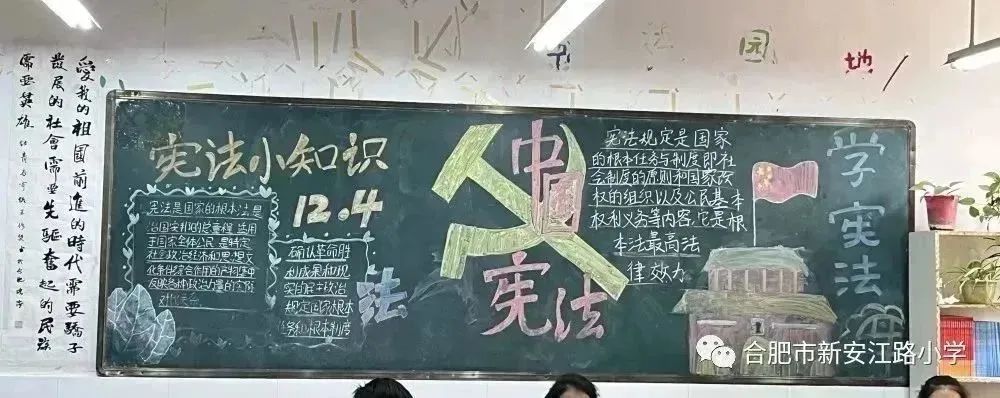 园地
愛我的祖國前進的時代需要驕子
發展的社會需要先驅奮起的民族
需要英雄
宪法小知识
12.4
宪法是国家的根本法是
治国安邦的总章程 适用
于国家全体公民 是特定
社会政治经济和思想文
化条件综合作用的产物集中
反映各种政治力量的实际
对比关系
确认革命胜
利成果和现
实民主政治
规定国家根本
根本制度
法
中国
宪法
宪法规定是国家
的根本任务与制度即社
会制度的原则和国家政
权的组织以及公民基本
权利义务等内容它是根
本法最高法
律效力
学宪法
合肥市新安江路小学